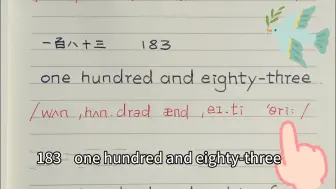 一百八十三 183
one hundred and eighty-three
/wʌn ,hʌn.drəd ænd ,eɪ.ti 'θri: /
183 one hundred and eighty-three